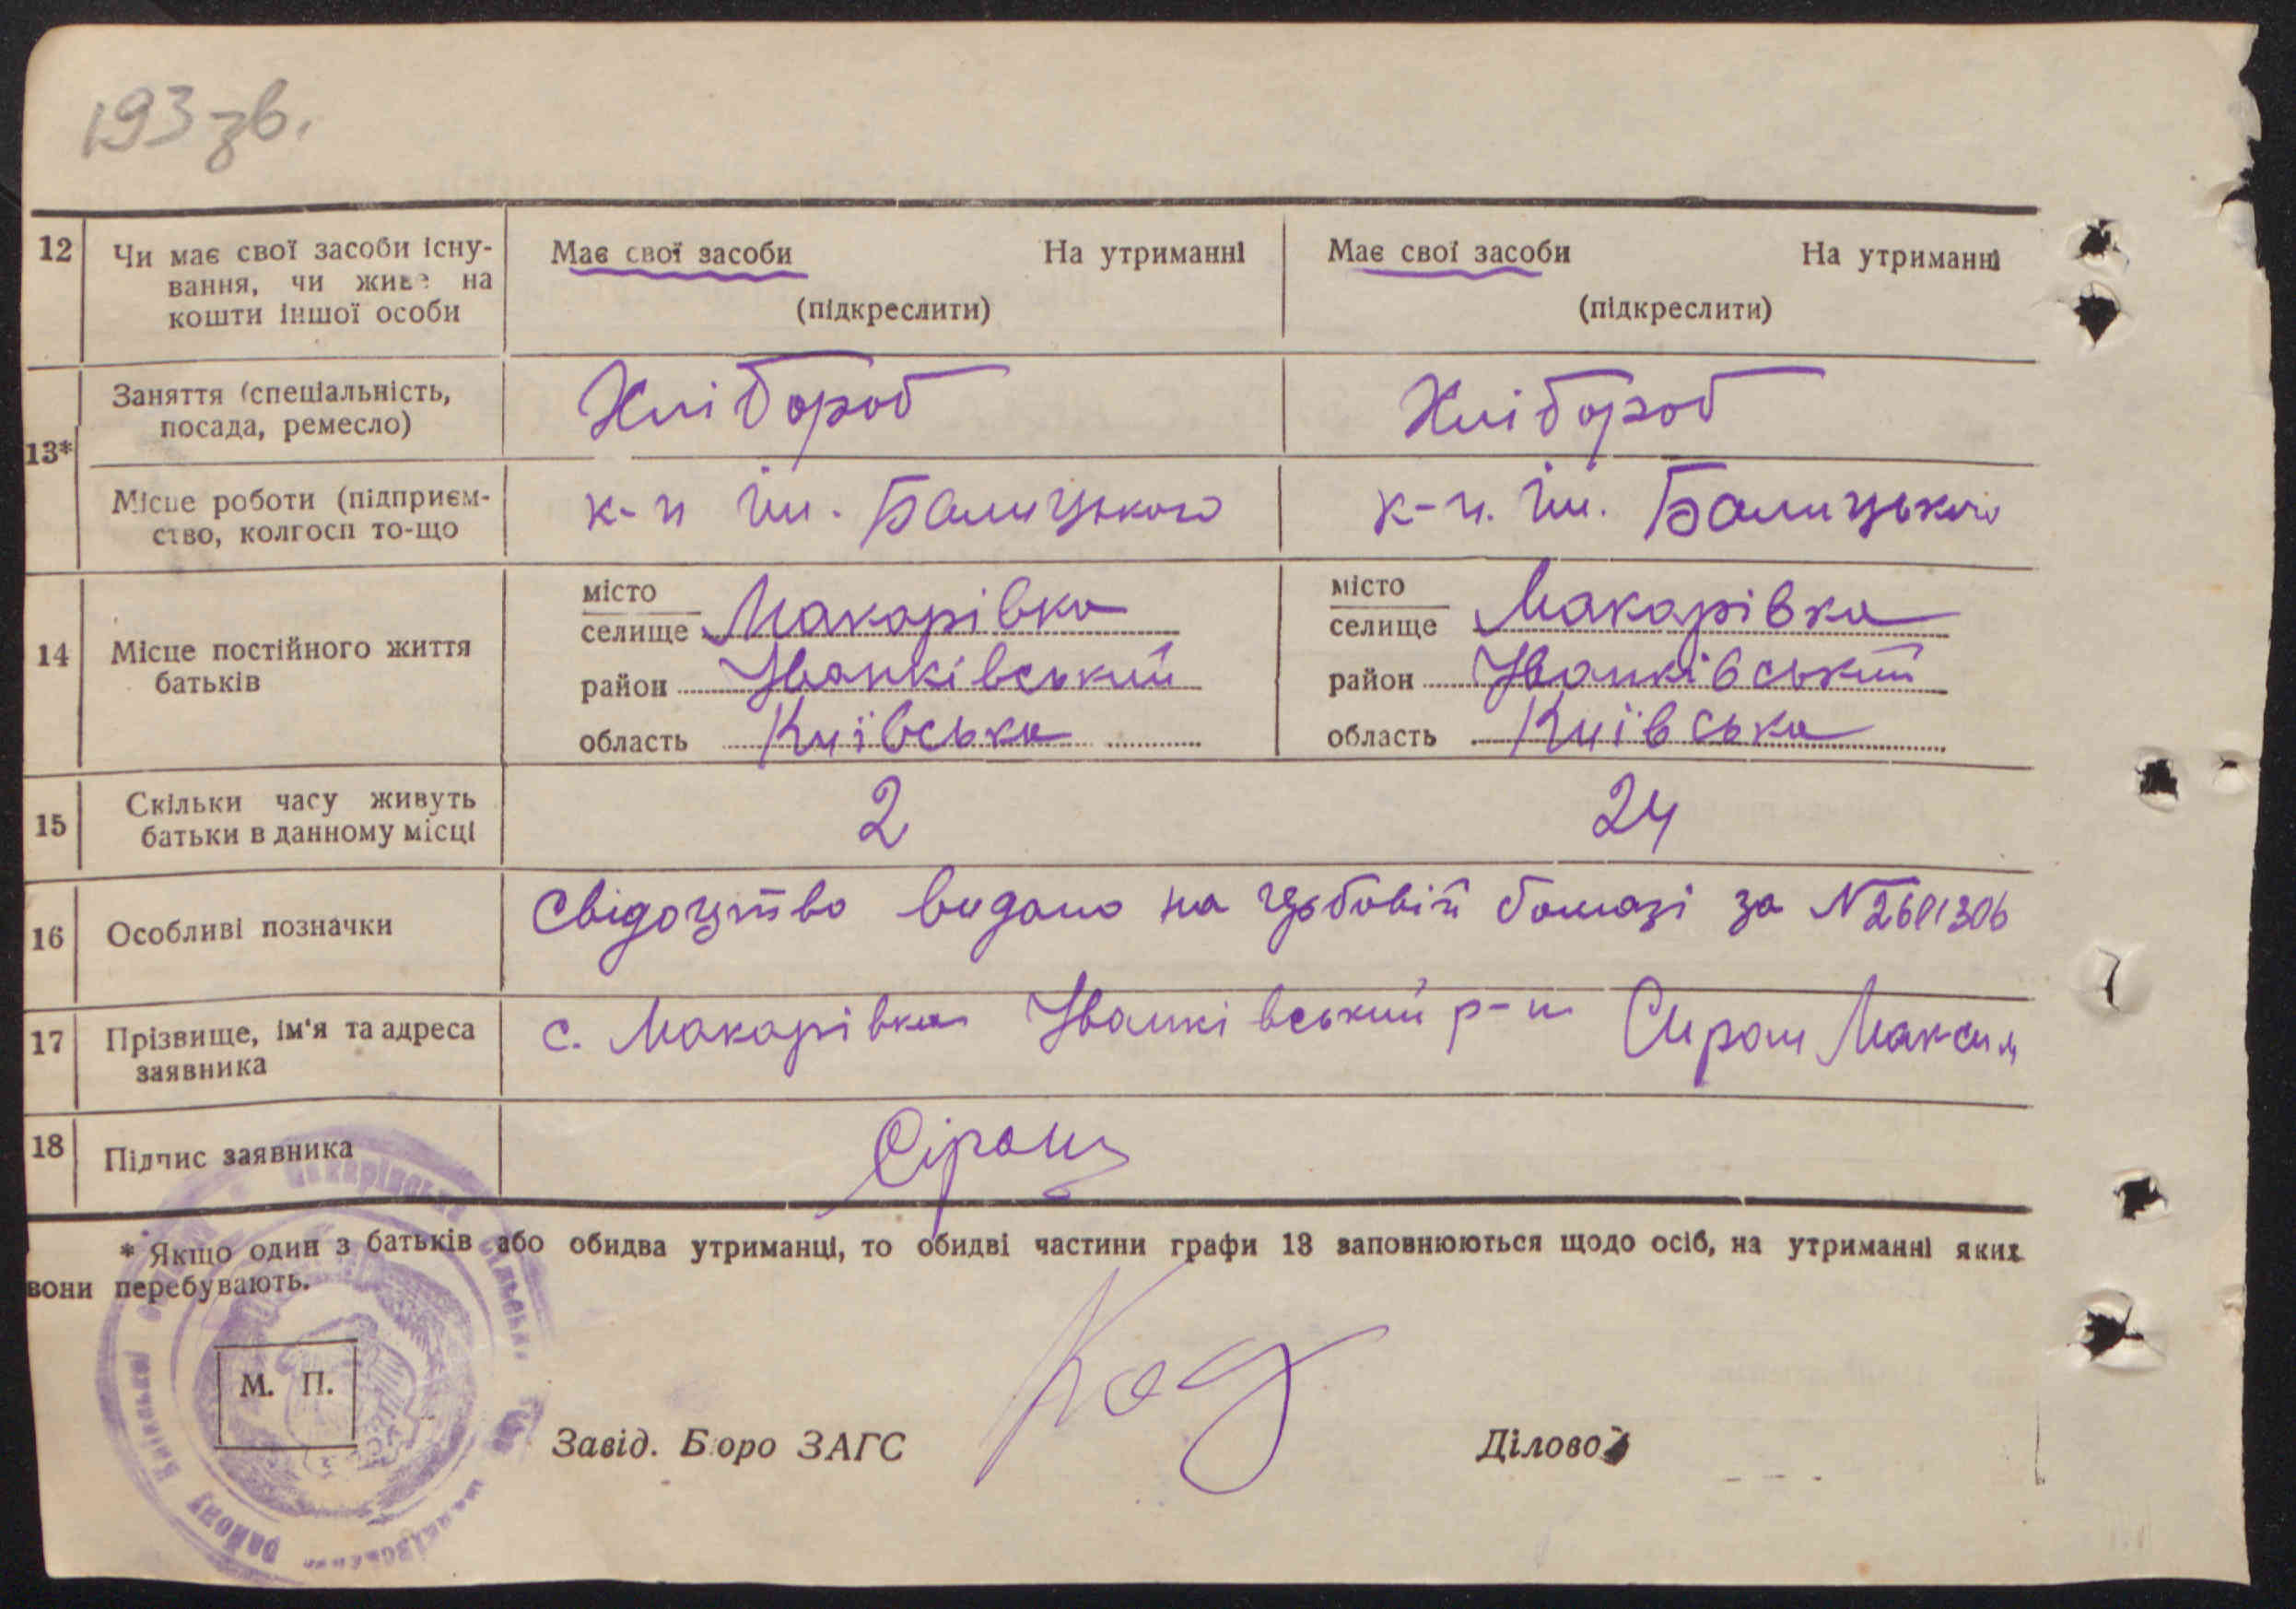 193 зв.
12 Чи має свої засоби існу-
вання, чи живе на
кошти іншої особи
Має свої засоби На утриманні
(підкреслити)
Має свої засоби На утриманні
(підкреслити)
13*
Заняття (спеціальність,
посада, ремесло)
Хлібороб
Хлібороб
Місце роботи (підприєм-
ство, колгосп то-що
к-п ім. Балицького
к-п. ім. Балицького
14 Місце постійного життя
батьків
місто
селище Макарівка
район Іванківський
область Київська
місто
селище Макарівка
район Іванківський
область Київська
15 Скільки часу живуть
батьки в данному місці
2
24
16 Особливі позначки
Свідоцтво видано на гербовій бомазі за № 2601306
17 Прізвище, ім'я та адреса
заявника
с. Макарівка Іванківський р-н Сираш Максим
18 Підпис заявника
* Якщо один з батьків або обидва утриманці, то обидві частини графи 13 заповнюються щодо осіб, на утриманні яких
вони перебувають.
М. П.
Завід. Бюро ЗАГС
Діловод